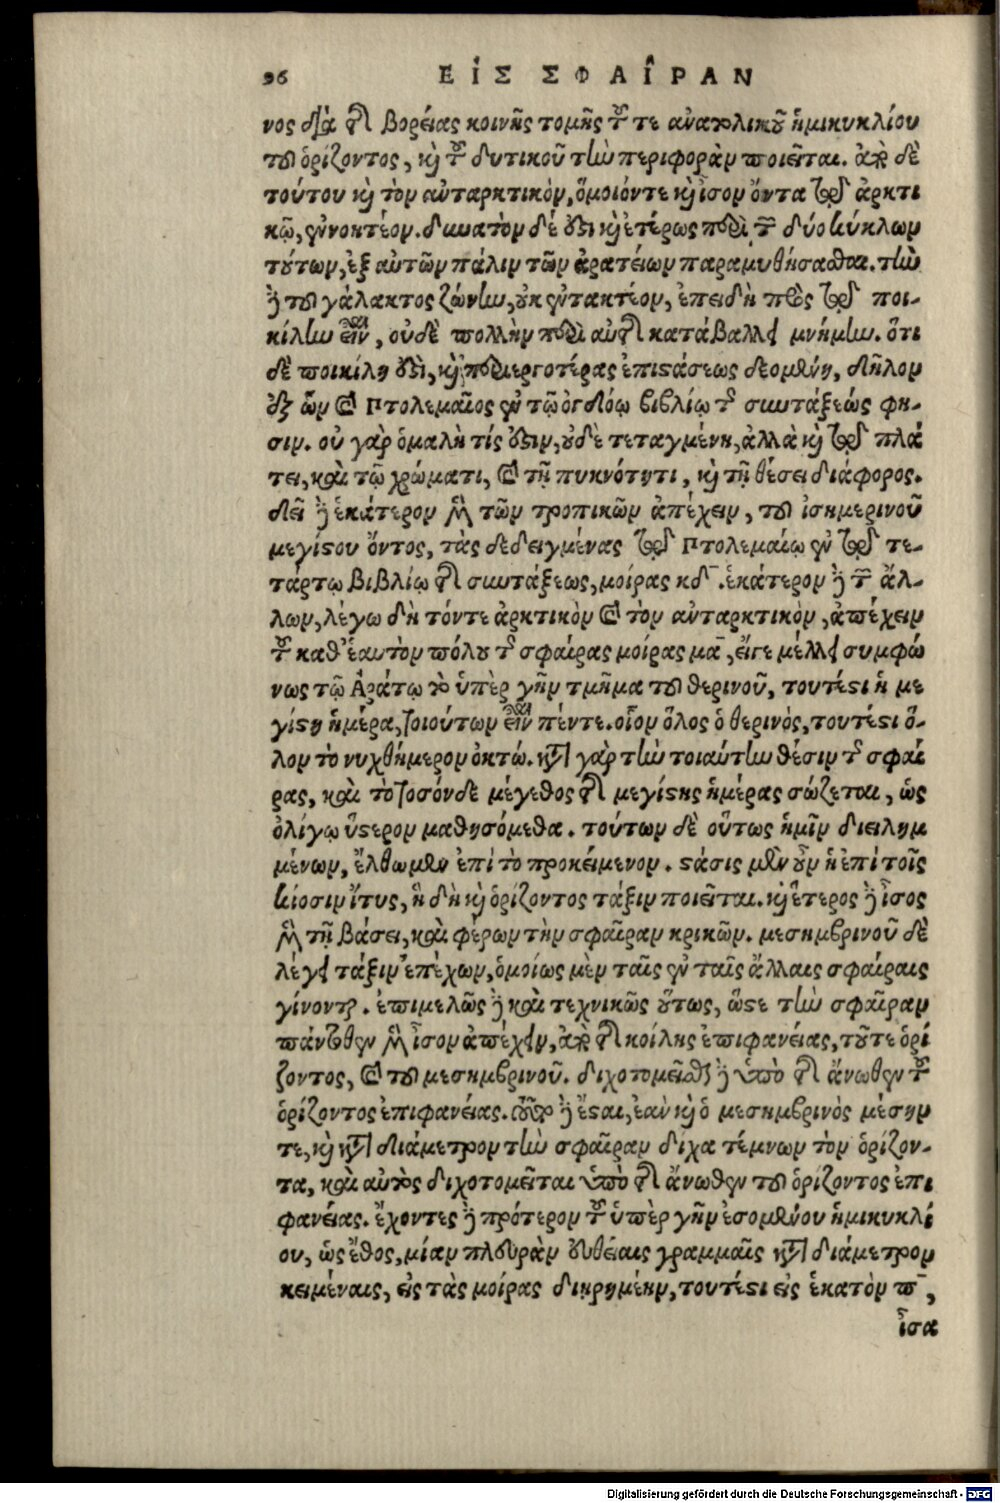 96 ΕἸΣ ΣΦΑΙ͂ΡΑΝ
νος διὰ τῆς βορείας κοινῆς τομῆς τοῦ τε ἀνατολικοῦ ἡμικυκλίου
τοῦ ὁρίζοντος, καὶ τοῦ δυτικοῦ τὴν περιφορὰν ποιεῖται. ἀπὸ δὲ
τούτου καὶ τὸν ἀνταρκτικὸν, ὅμοιόν τε καὶ ἶσον ὄντα τῷ ἀρκτι
κῷ, ἐννοητέον. δυνατὸν δέ ἐστι καὶ ἑτέρως περὶ τῶν δύο κύκλων
τούτων, ἐξ αὐτῶν πάλιν τῶν ἀρατείων παραμυθήσασθαι. τὴν
δὲ τοῦ γάλακτος ζώνην, οὐκ ἐντακτέον, ἐπειδὴ πρὸς τῷ ποι-
κίλην εἶναι, οὐδὲ πολλὴν περὶ αὐτῆς καταβάλλει μνήμην. ὅτι
δὲ ποικίλη ἐστὶ, καὶ περιεργοτέρας ἐπιστάσεως δεομένη, δῆλον
ἐξ ὧν καὶ Πτολεμαῖος ἐν τῷ ὀγδόῳ βιβλίῳ τῆς συντάξεώς φη-
σιν. οὐ γὰρ ὁμαλὴ τίς ἐστιν, οὐδὲ τεταγμένη, ἀλλὰ καὶ τῷ πλά
τει, καὶ τῷ χρώματι, καὶ τῇ πυκνότητι, καὶ τῇ θέσει διάφορος.
δεῖ δὲ ἑκάτερον μὲν τῶν τροπικῶν ἀπέχειν, τοῦ ἰσημερινοῦ
μεγίστου ὄντος, τὰς δεδειγμένας τῷ Πτολεμαίῳ ἐν τῷ τε-
τάρτῳ βιβλίῳ τῆς συντάξεως, μοίρας κδ. ἑκάτερον δὲ τῶν ἄλ-
λων, λέγω δὴ τόν τε ἀρκτικὸν καὶ τὸν ἀνταρκτικὸν, ἀπέχειν
τοῦ καθ' ἑαυτὸν πόλου τῆς σφαίρας μοίρας μα, εἴγε μέλλει συμφώ
νως τῷ Ἀράτῳ τὸ ὑπὲρ γῆν τμῆμα τοῦ θερινοῦ, τουτέστι ἡ με
γίστη ἡμέρα, τοιούτων εἶναι πέντε. οἷον ὅλος ὁ θερινὸς, τουτέστι ὅ-
λον τὸ νυχθήμερον ὀκτώ. κατὰ γὰρ τὴν τοιαύτην θέσιν τῆς σφαί
ρας, καὶ τὸ τοσόνδε μέγεθος τῆς μεγίστης ἡμέρας σώζεται, ὡς
ὀλίγῳ ὕστερον μαθησόμεθα. τούτων δὲ οὕτως ἡμῖν διειλημ
μένων, ἔλθωμεν ἐπὶ τὸ προκείμενον. στάσις μὲν οὖν ἡ ἐπὶ τοῖς
κίοσιν ἴτυς, ἣ δὴ καὶ ὁρίζοντος τάξιν ποιεῖται. καὶ ἕτερος δὲ ἶσος
μὲν τῇ βάσει, καὶ φέρων τὴν σφαῖραν κρικῶν. μεσημβρινοῦ δὲ
λέγει τάξιν ἐπέχων, ὁμοίως μὲν ταῖς ἐν ταῖς ἄλλαις σφαίραις
γίνονται. ἐπιμελῶς δὲ καὶ τεχνικῶς οὕτως, ὥστε τὴν σφαῖραν
πάντοθεν μὲν ἶσον ἀπέχειν, ἀπὸ τῆς κοίλης ἐπιφανείας, τοῦ τε ὁρί
ζοντος, καὶ τοῦ μεσημβρινοῦ. διχοτομεῖσθαι δὲ ὑπὸ τῆς ἄνωθεν τοῦ
ὁρίζοντος ἐπιφανείας. τοῦτο δὲ ἔσται, ἐὰν καὶ ὁ μεσημβρινὸς μέσην
τε, καὶ κατὰ διάμετρον τὴν σφαῖραν δίχα τέμνων τὸν ὁρίζον-
τα, καὶ αὐτὸς διχοτομεῖται ὑπὸ τῆς ἄνωθεν τοῦ ὁρίζοντος ἐπι
φανείας. ἔχοντες δὲ πρότερον τοῦ ὑπὲρ γῆν ἐσομένου ἡμικυκλί
ου, ὡς ἔθος, μίαν πλευρὰν εὐθείαις γραμμαῖς κατὰ διάμετρον
κειμέναις, εἰς τὰς μοίρας διῃρημένην, τουτέστι εἰς ἑκατὸν π,
ἶσα
Digitalisierung gefördert durch die Deutsche Forschungsgemeinschaft - DFG